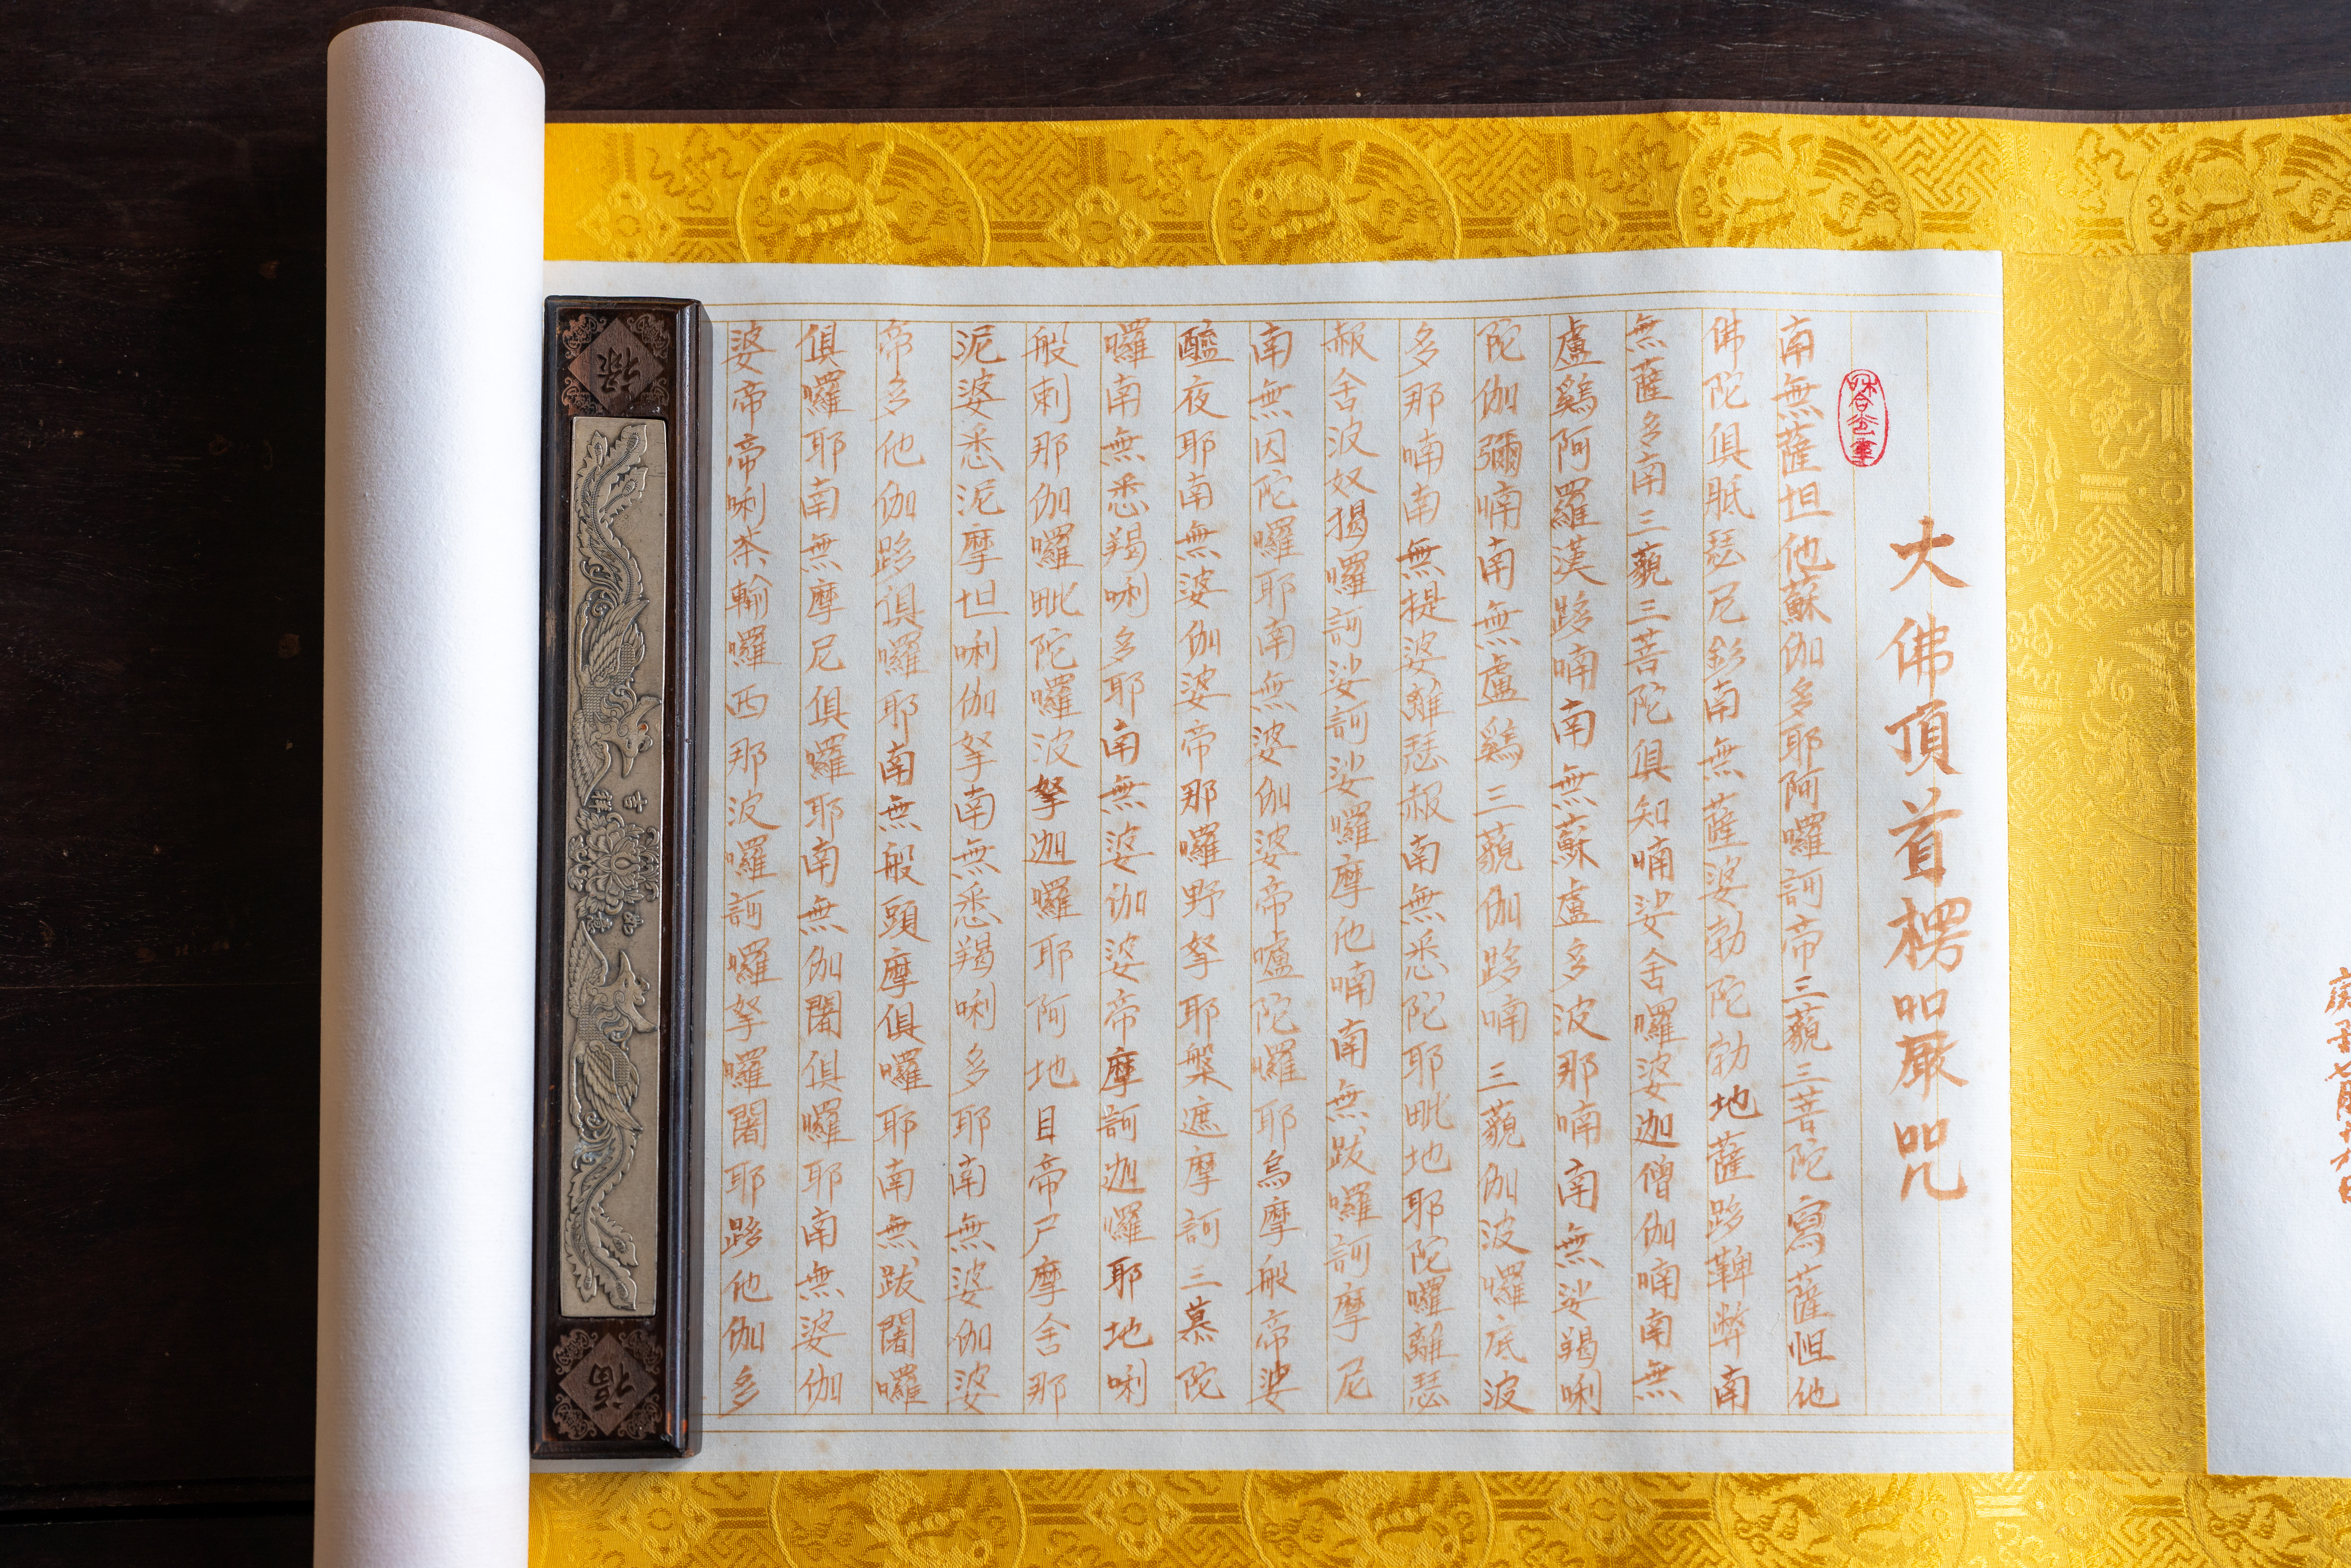 大佛頂首楞嚴咒
南無薩怛他蘇伽多耶阿囉訶帝三藐三菩陀寫薩怛他
佛陀俱胝瑟尼釤南無薩婆勃陀勃地薩跢鞞弊南
無薩多南三藐三菩陀俱知喃娑舍囉婆迦僧伽喃南無
盧雞阿羅漢跢喃南無蘇盧多波那喃南無娑羯唎
陀伽彌喃南無盧雞三藐伽跢喃三藐伽波囉底波
多那喃南無提婆離瑟赧南無悉陀耶毗地耶陀囉離瑟
赧舍波奴揭囉訶娑訶娑囉摩他喃南無跋囉訶摩尼
南無因陀囉耶南無婆伽婆帝嚧陀囉耶烏摩般帝娑
醯夜耶南無婆伽婆帝那囉野拏耶槃遮摩訶三慕陀
囉南無悉羯唎多耶南無婆伽婆帝摩訶迦囉耶地唎
般剌那伽囉毗陀囉波拏迦囉耶阿地目帝尸摩舍那
泥婆悉泥摩怛唎伽拏南無悉羯唎多耶南無婆伽婆
帝多他伽跢俱囉耶南無般頭摩俱囉耶南無跋闍囉
俱囉耶南無摩尼俱囉耶南無伽闍俱囉耶南無婆伽
婆帝帝唎茶輸囉西那波囉訶囉拏囉闍耶跢他伽多
福
吉祥